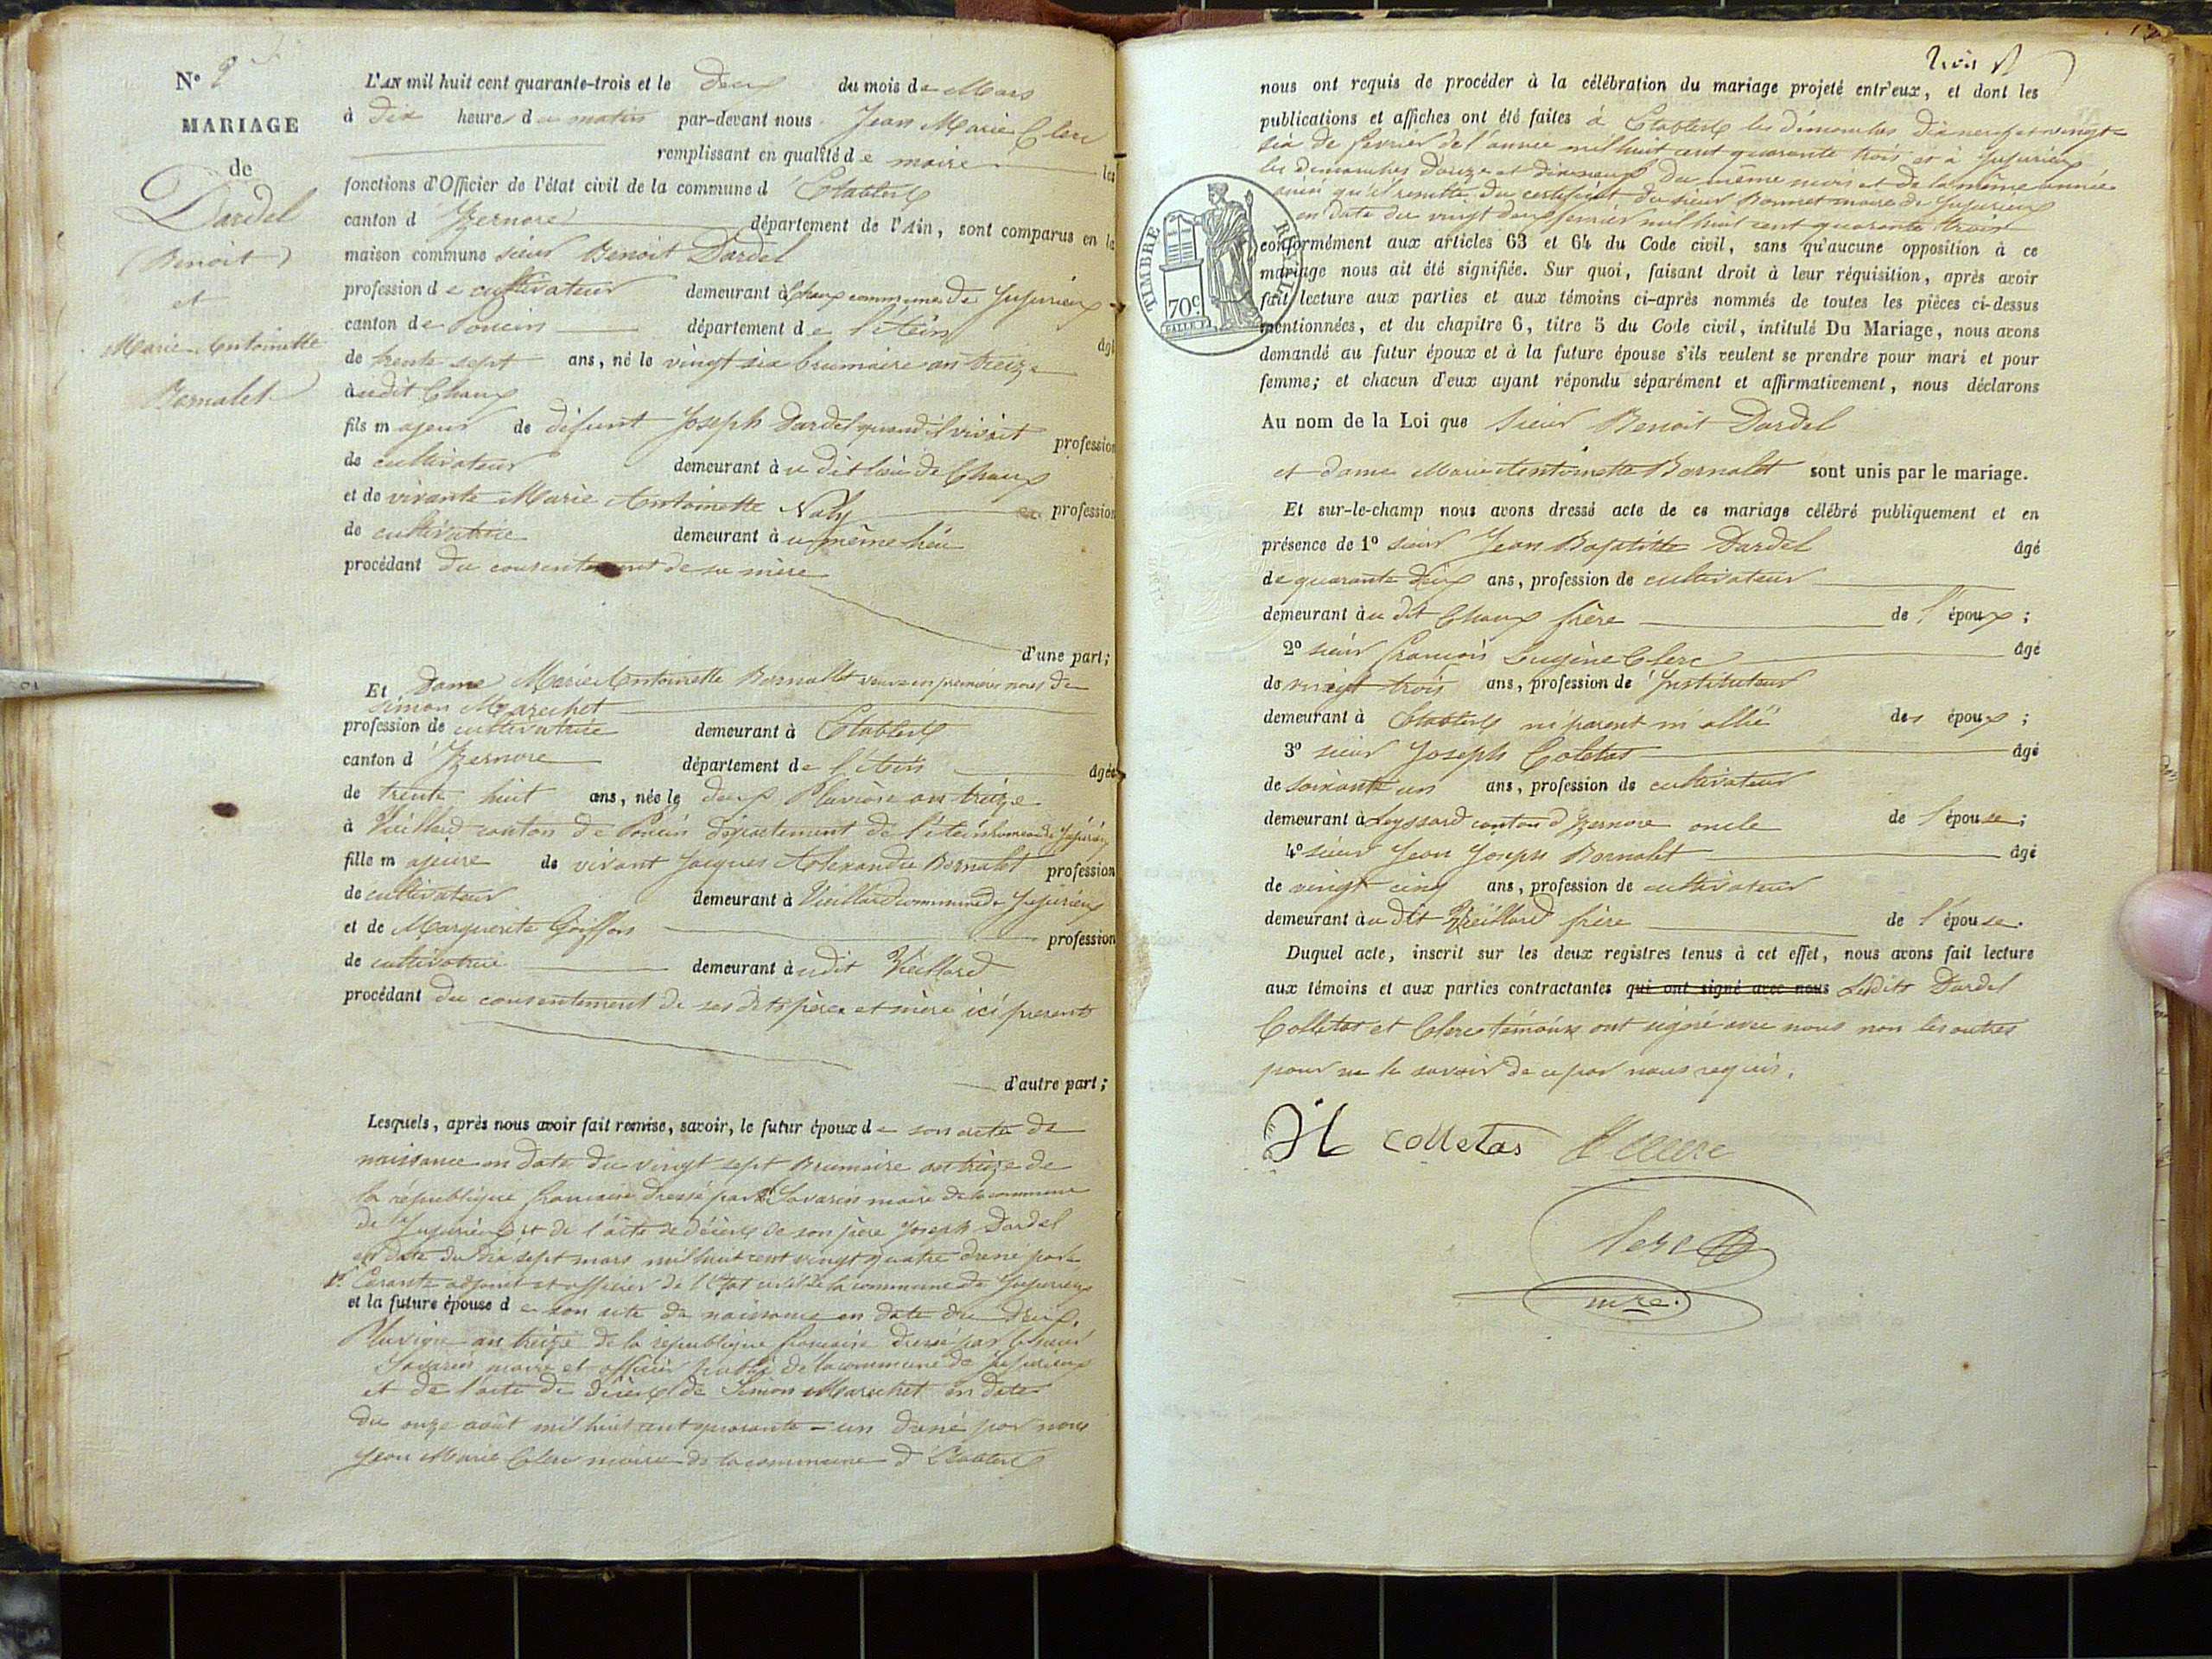 N° 2
MARIAGE
de
Dardel
Benoit
et
Marie Antoinette
Bornalet
L'AN mil huit cent quarante-trois et le deux du mois de Mars
à dix heures du matin par-devant nous Jean Marie Clerc
remplissant en qualité de maire les
fonctions d'Officier de l'état civil de la commune d'Etables
canton d'Izernore département de l'Ain, sont comparus en la
maison commune sieur Benoit Dardel
profession de cultivateur demeurant à Chaux commune de Jujurieux
canton de Poncin département de l'Ain âgé
de trente sept ans, né le vingt six brumaire an treize
audit Chaux
fils majeur de défunt Joseph Dardel quand il vivait profession
de cultivateur demeurant au dit lieu de Chaux
et de vivante Marie Antoinette profession
de cultivatrice demeurant au même lieu
procédant du consentement de sa mère
d'une part;
Et Dame Marie Antoinette Bornallet veuve en premières noces de
Simon Marechet
profession de cultivatrice demeurant à Etables
canton d'Izernore département de l'Ain âgée
de trente huit ans, née le deux Pluviose an treize
à Vieillard canton de Poncin département de l'Ain commune de Jujurieux
fille majeure de vivant Jacques Alexandre Bornalet profession
de cultivateur demeurant à Vieillard commune de Jujurieux
et de Marguerite Goiffon profession
de cultivatrice demeurant audit Vieillard
procédant du consentement de ses dits père et mère ici présents
d'autre part;
Lesquels, après nous avoir fait remise, savoir, le futur époux de son acte de
naissance en date du vingt sept Brumaire an treize de
la république française dressé par Savarin maire de la commune
de Jujurieux et de l'acte de décès de son père Joseph Dardel
en date du dix sept mars mil huit cent vingt quatre dressé par
adjoint et officier de l'Etat civil de la commune de Jujurieux
et la future épouse de son acte de naissance en date du deux
Pluviose an treize de la république française dressé par le sieur
Savarin maire et officier public de la commune de Jujurieux
et de l'acte de décès de Simon Marechet en date
du onze août mil huit cent quarante-un dressé par nous
Jean Marie Clerc maire de la commune d'Etables
trois
nous ont requis de procéder à la célébration du mariage projeté entr'eux, et dont les
publications et affiches ont été faites à Etables les dimanches dix neuf et vingt
six de fevrier de l'année mil huit cent quarante trois et à Jujurieux
les dimanches douze et dix neuf du même mois et de la même année
ainsi qu'il resulte du certificat du sieur Bonnet maire de Jujurieux
en date du vingt deux fevrier mil huit cent quarante trois
TIMBRE ROYAL
70c.
conformément aux articles 63 et 64 du Code civil, sans qu'aucune opposition à ce
mariage nous ait été signifiée. Sur quoi, faisant droit à leur réquisition, après avoir
fait lecture aux parties et aux témoins ci-après nommés de toutes les pièces ci-dessus
mentionnées, et du chapitre 6, titre 5 du Code civil, intitulé Du Mariage, nous avons
demandé au futur époux et à la future épouse s'ils veulent se prendre pour mari et pour
femme; et chacun d'eux ayant répondu séparément et affirmativement, nous déclarons
Au nom de la Loi que sieur Benoit Dardel
et dame Marie Antoinette Bornalet sont unis par le mariage.
Et sur-le-champ nous avons dressé acte de ce mariage célébré publiquement et en
présence de 1° sieur Jean Bapatitte Dardel âgé
de quarante deux ans, profession de cultivateur
demeurant au dit Chaux frère de l'époux;
2° sieur François Eugène Clerc âgé
de vingt trois ans, profession de Instituteur
demeurant à Etables ni parent ni allié des époux;
3° sieur Joseph Coletas âgé
de soixante un ans, profession de cultivateur
demeurant à Leyssard canton d'Izernore oncle de l'épouse;
4° sieur Jean Joseph Bornalet âgé
de vingt cinq ans, profession de cultivateur
demeurant au dit Vieillard frère de l'épouse.
Duquel acte, inscrit sur les deux registres tenus à cet effet, nous avons fait lecture
aux témoins et aux parties contractantes qui ont signé avec nous Lesdits Dardel
Colletas et Clerc témoins ont signé avec nous non les autres
pour ne le savoir de ce par nous requis.
colletas Clerc
Clerc
mre.